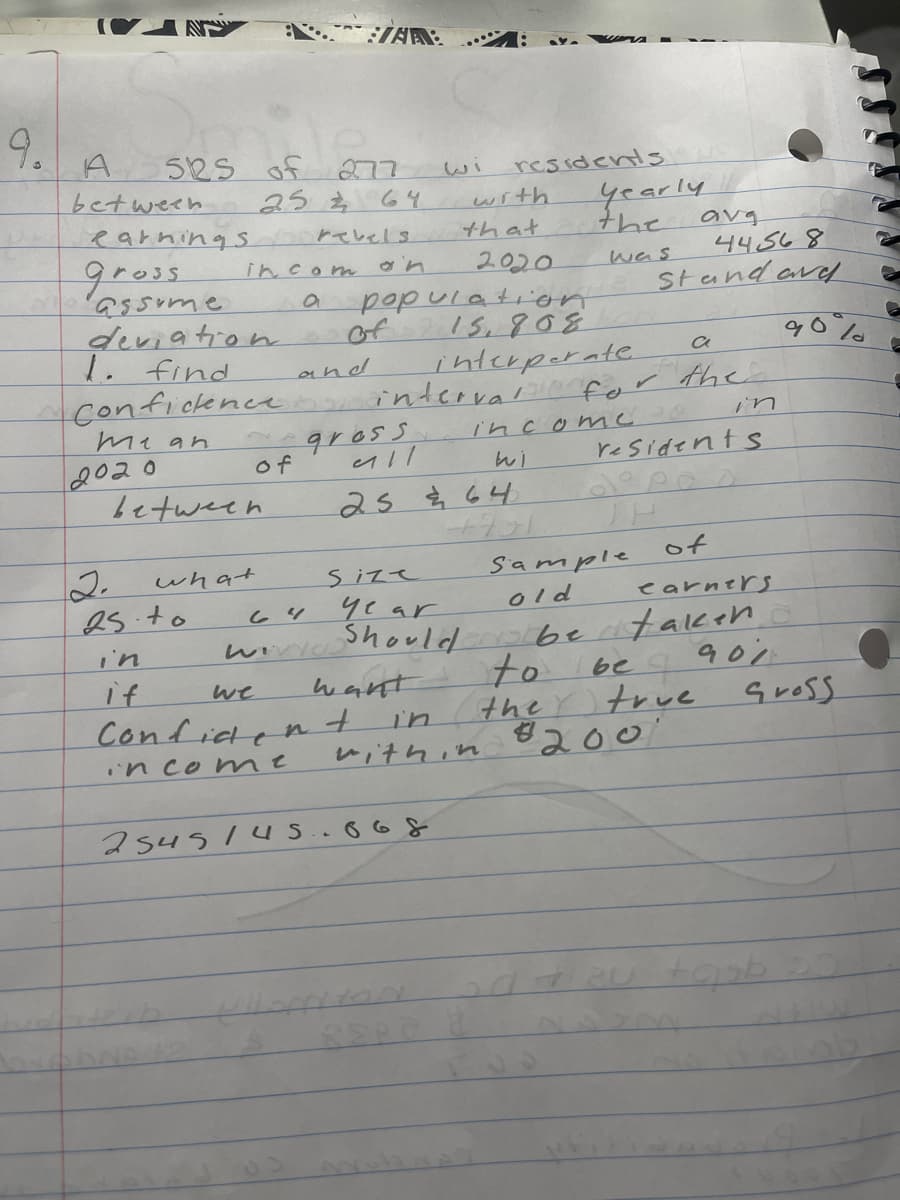 9. A SRS of 277 wi residents
between 25 & 64 with yearly
earnings revels that the avg
gross incom on 2020 was 44568
assume a population standard
deviation of 15,808
1. find and interperate a 90%
confidence interval for the
mean gross income in
2020 of all wi residents
between 25 & 64
2. what size sample of
25 to 64 year old earners
in wi should be taken
if we want to be 90%
Confident in the true gross
income within $200
2545145..868